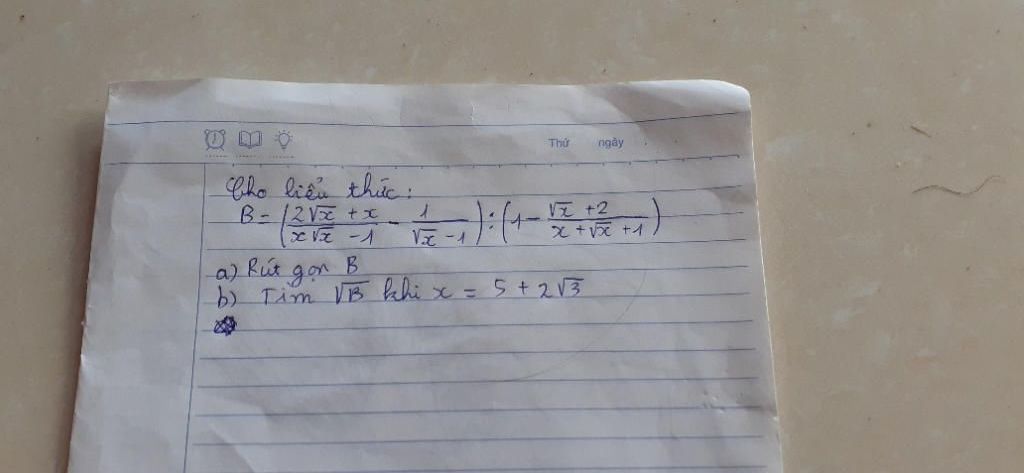 Thứ ngày
Cho biểu thức:
B = (2√x + x / x√x - 1 - 1 / √x - 1) : (1 - √x + 2 / x + √x + 1)
a) Rút gọn B
b) Tìm √B khi x = 5 + 2√3